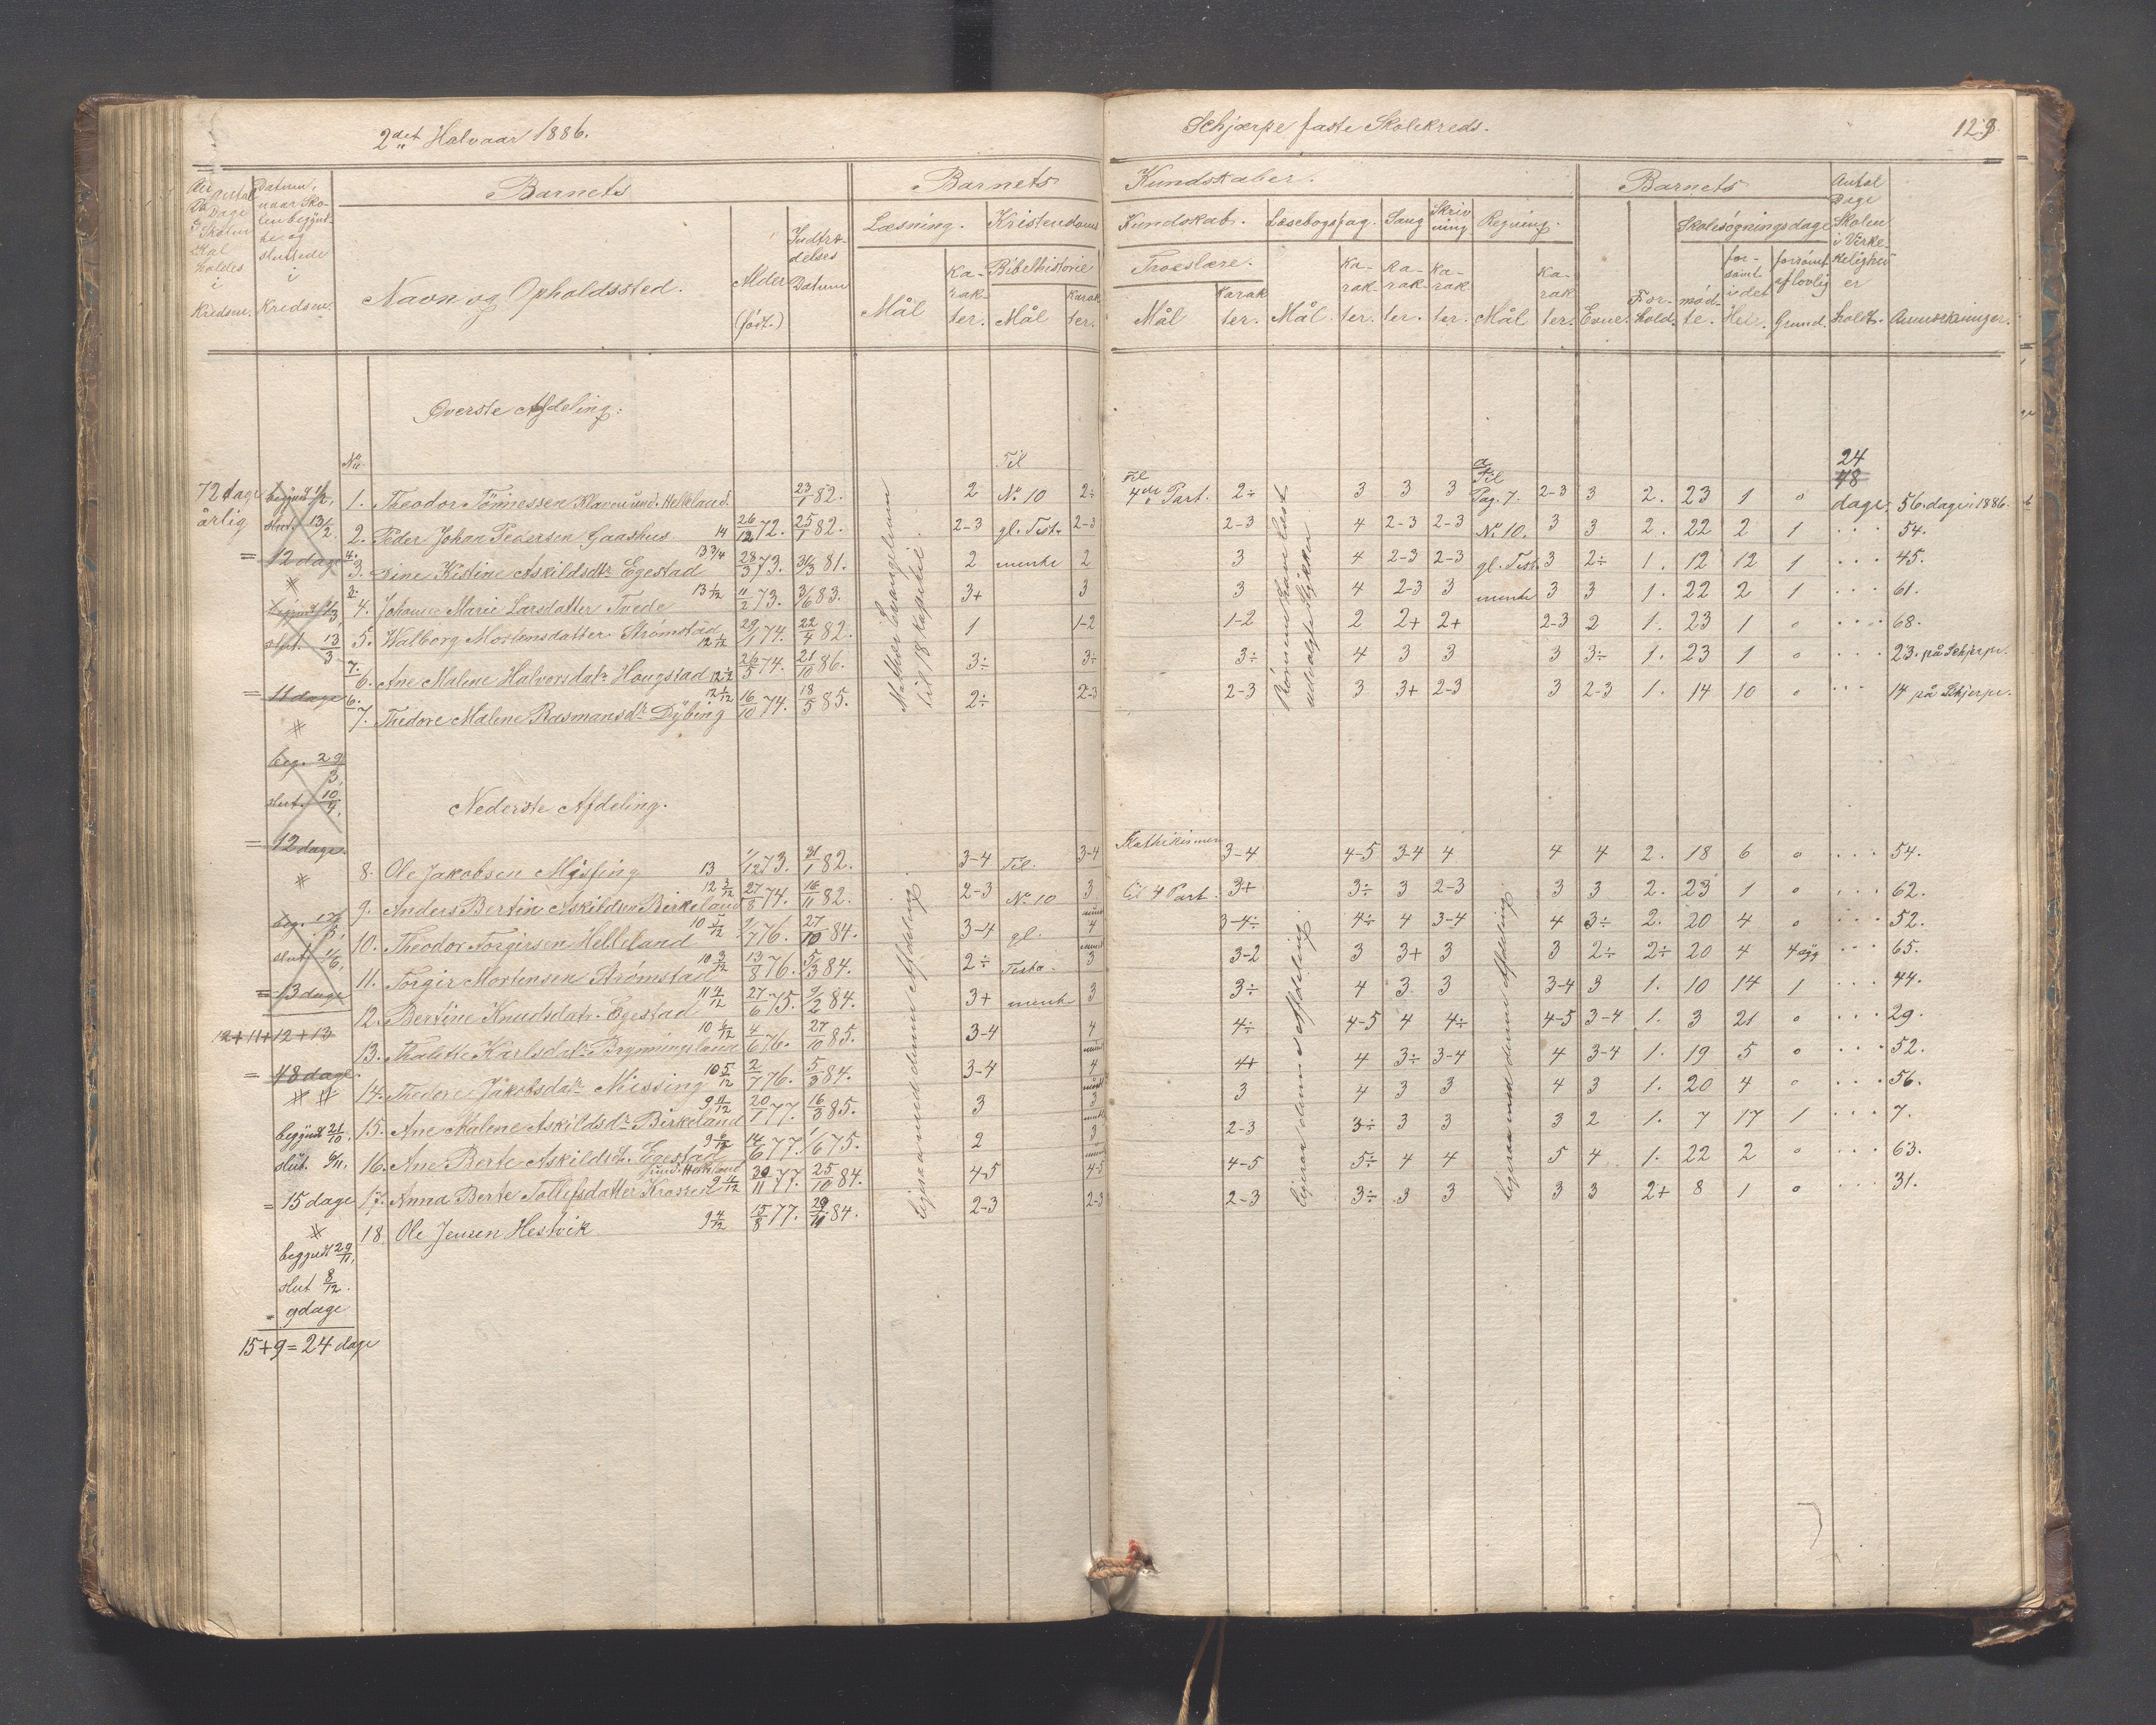 2det Halvaar 1886.
Schjærpe faste Skolekreds.
123.
Antal Dage Skolen skal holdes i Kredsen.
Datum, naar Skolen begyndte og sluttede i Kredsen.
Barnets
Navn og Opholdssted.
Alder (født.)
Indtrædelses Datum
Barnets
Kundskaber.
Læsning.
Mål
Karakter.
Kristendoms
Kundskab.
Bibelhistorie
Mål
Karakter.
Troeslære.
Mål
Karakter.
Læsebogsfag.
Mål.
Karakter.
Sang
Karakter.
Skrivning
Karakter.
Regning.
Mål
Karakter.
Barnets
Evne.
Forhold.
Skolesøgningsdage
mødte.
forsømt i det Hele.
forsømt af lovlig Grund.
Antal Dage Skolen i Virkelighed er holdt.
Anmerkninger.
Øverste Afdeling.
No.
Til
Til
a
Til
24
48
72 dage begynd 1/2, 1. Theodor Tönnessen Klaven und. Helleland. 23/1 82. 2 No 10 2÷ 4de Part. 2÷ 3 3 3 Pag. 7. 2-3 3 2. 23 1 0 dage. 56 dage i 1886.
årlig slut. 13/2. 2. Peder Johan Pedersen Gaashus. 14 26/12 72. 25/1 82. 2-3 gl. Test. 2-3 2-3 4 2-3 2-3 No 10. 3 3 2. 22 2 1 . . . 54.
= 12 dage 4. 3. Sine Kistine Askildsdtr Egestad 13 3/4 28/3 73. 31/3 81. 2 mente 2 3 4 2-3 2-3 gl. Test. 3 2÷ 1. 12 12 1 . . . 45.
begynd 1/3, 4. Johanne Marie Larsdatter Tvede 13 1/2 11/2 73. 3/6 83. 3+ 3 3 4 2-3 3 mente 3 3 1. 22 2 1 . . . 61.
slut. 13/3 5. Walborg Mortensdatter Strømstad 29/1 74. 22/4 82. 1 1-2 1-2 2 2+ 2+ 2-3 2 1. 23 1 0 . . . 68.
7. 6. Ane Malene Halvorsdatr Hougstad 12 1/2 26/5 74. 21/10 86. 3÷ 3÷ 3÷ 4 3 3 3 3÷ 1. 23 1 0 . . . 23. på Schjerpe.
= 11 dage 6. 7. Thedore Malene Rasmansdtr Dÿbing 12 1/12 16/10 74. 18/5 85. 2÷ 2-3 2-3 3 3+ 2-3 3 2-3 1. 14 10 0 . . . 14 på Schjerpe.
Matthæi Evangelium
til 18 kapitel.
udvalgte Stykker
beg. 29/3,
slut. 10/4,
= 12 dage.
Nederste Afdeling.
Kathekismen
8. Ole Jakobsen Mÿsfing 13 1/12 73. 31/1 82. 3-4 Til. 3-4 3-4 4-5 3-4 4 4 4 2. 18 6 0 . . . 54.
9. Anders Bertin Askildsen Birkeland 12 3/12 27/8 74. 16/11 82. 2-3 No 10 3 til 4 Part. 3+ 3÷ 3 2-3 3 3 2. 23 1 0 . . . 62.
10. Theodor Torgirsen Helleland 10 5/12 9/7 76. 27/10 84. 3-4 gl. 4 3-4÷ 4÷ 4 3-4 4 3÷ 2. 20 4 0 . . . 52.
slut. 1/6, 11. Torgir Mortensen Strømstad 10 3/12 13/8 76. 5/3 84. 2÷ Testa- 3 3-2 3 3+ 3 3 2÷ 2÷ 20 4 4 . . . 65.
= 13 dage 12. Bertine Knudsdatr. Egestad 11 4/12 27/6 75. 9/2 84. 3+ mente 3 3÷ 4 3 3 3-4 3 1. 10 14 1 . . . 44.
12+11+12+13 13. Thalette Karlsdatr Brynningsland 10 6/12 4/6 76. 27/10 85. 3-4 4 4÷ 4-5 4 4÷ 4-5 3-4 1. 3 21 0 . . . 29.
= 48 dage. 14. Thedore Jakobsdatr Missing 10 5/12 2/7 76. 5/3 84. 3-4 4 4+ 4 3÷ 3-4 4 3-4 1. 19 5 0 . . . 52.
begynd 21/10, 15. Ane Malene Askildsdtr Birkeland 9 11/12 20/1 77. 16/3 85. 3 3 3 4 3 3 4 3 1. 20 4 0 . . . 56.
slut. 6/11, 16. Ane Berte Askildsdt. Egestad 9 6/12 14/6 77. 1/6 75. 2 3 2-3 3÷ 3 3 3 2 1. 7 17 1 . . . 7.
und. Helleland
= 15 dage 17. Anna Berte Tollefsdatter Krossen 30/11 77. 25/10 84. 4-5 4-5 4-5 5÷ 4 4 5 4 1. 22 2 0 . . . 63.
18. Ole Jensen Hestvik 9 4/12 15/8 77. 29/11 84. 2-3 2-3 2-3 3÷ 3 3 3 3 2+ 8 1 0 . . . 31.
ligesaa med denne Afdeling.
ligesaa denne Afdeling.
ligesaa med denne Afdeling.
begyndt 29/11,
slut 8/12.
= 9 dage
15+9=24 dage